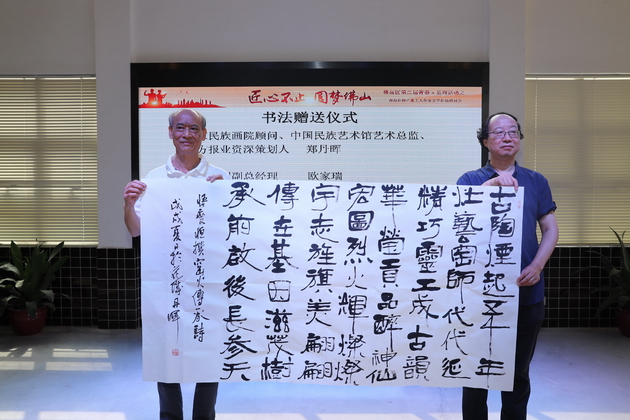 匠心不止 圆梦佛山
书法赠送仪式
民族画院顾问、中国民族艺术馆艺术总监、
方报业资深策划人 郑丹晖
副总经理 欧家瑞
古陶煙起五千年
藝陶師代代延
精巧靈工成古韻
華瑩貢品醉神仙
宏圖烈火輝燦燦
宇志旌旗美翩翩
傳在基因滋茂樹
承前啟後長參天
撰窯火傳承詩
戊戌夏日於花城丹暉